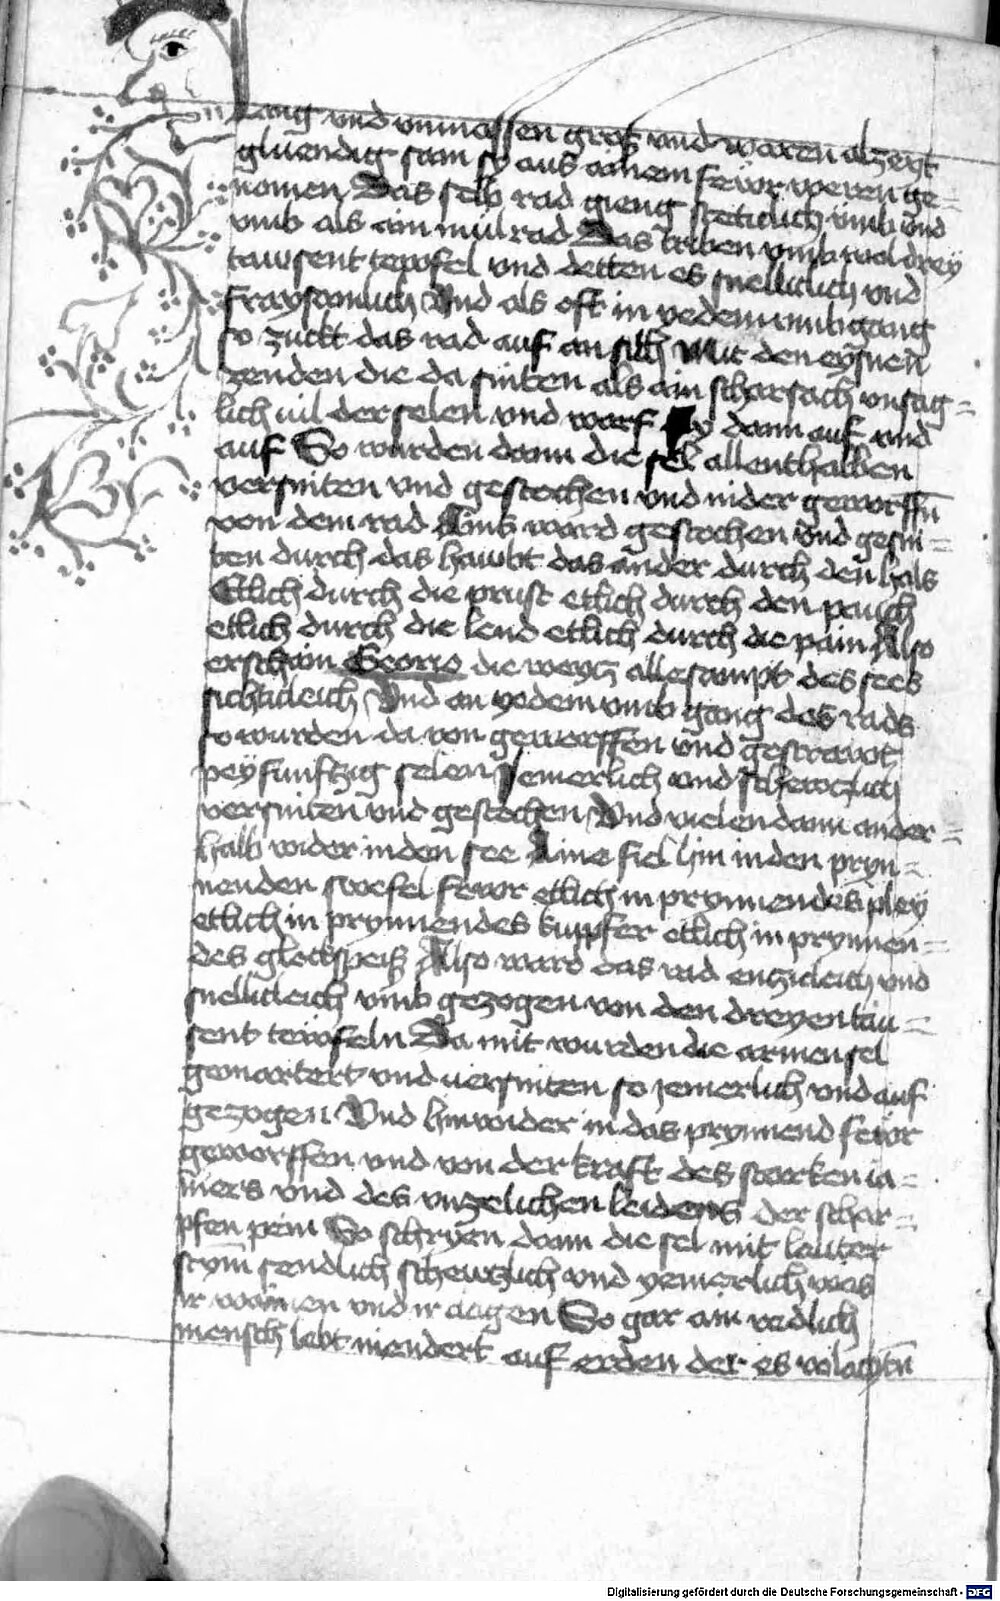 lang vnd vnmassen gros vnd waren alzeyt
gluendig sam sy aus ainem fewr weren ge=
nomen Das selb rad gieng steticlich vmb vnd
vmb als ain mulrad Das triben vmb wol drey
tawsent tewfel vnd detten es snelliclich vnd
fraysamlich Vnd als oft in yedem vmbgang
so zuckt das rad auf an sich Mit den eysnen
zenden die da sniten als ain scharsach vnsag=
lich vil der selen vnd warf sy dann auf vnd
auf So wurden dann die sel allenthalben
versniten vnd gestochen vnd nider geworffn̄
von dem rad Ains ward gestochen vnd gesni=
ten durch das hawbt das ander durch den hals
Etlich durch die prust etlich durch den pauch
etlich durch die lend etlich durch die pain Also
erschain Georio die weytz allesampt des sees
sichticleich Vnd an yedem vmbgang des rads
so wurden da von geworffen vnd gestrawt
pey funftzig selen Jemerlich vnd schewczlich
versniten vnd gestochen Vnd vielen dann ander=
halb wider in den see Aine fiel hin in den pryn=
nenden swefel fewr etlich in prynnendes pley
etlich in prynnendes kupffer etlich in prynnen=
des glockspeis Also ward das rad enzicleich vnd
snellicleich vmb gezogen von den dreyen tau=
sent tewfeln Da mit wurden die armen sel
gemartert vnd versniten so jemerlich vnd auf
gezogen Vnd hinwider in das prynnend fewr
geworffen vnd von der kraft des starken ja=
mers vnd des vnzelichen leidens der schar=
pfen pein So schryen dann die sel mit lauter
stym sendlich schewczlich vnd yemerlich was
ir wainen vnd ir clagen So gar ain redlich
mensch lebt niendert auf erden der es volachtn̄
Digitalisierung gefördert durch die Deutsche Forschungsgemeinschaft - DFG